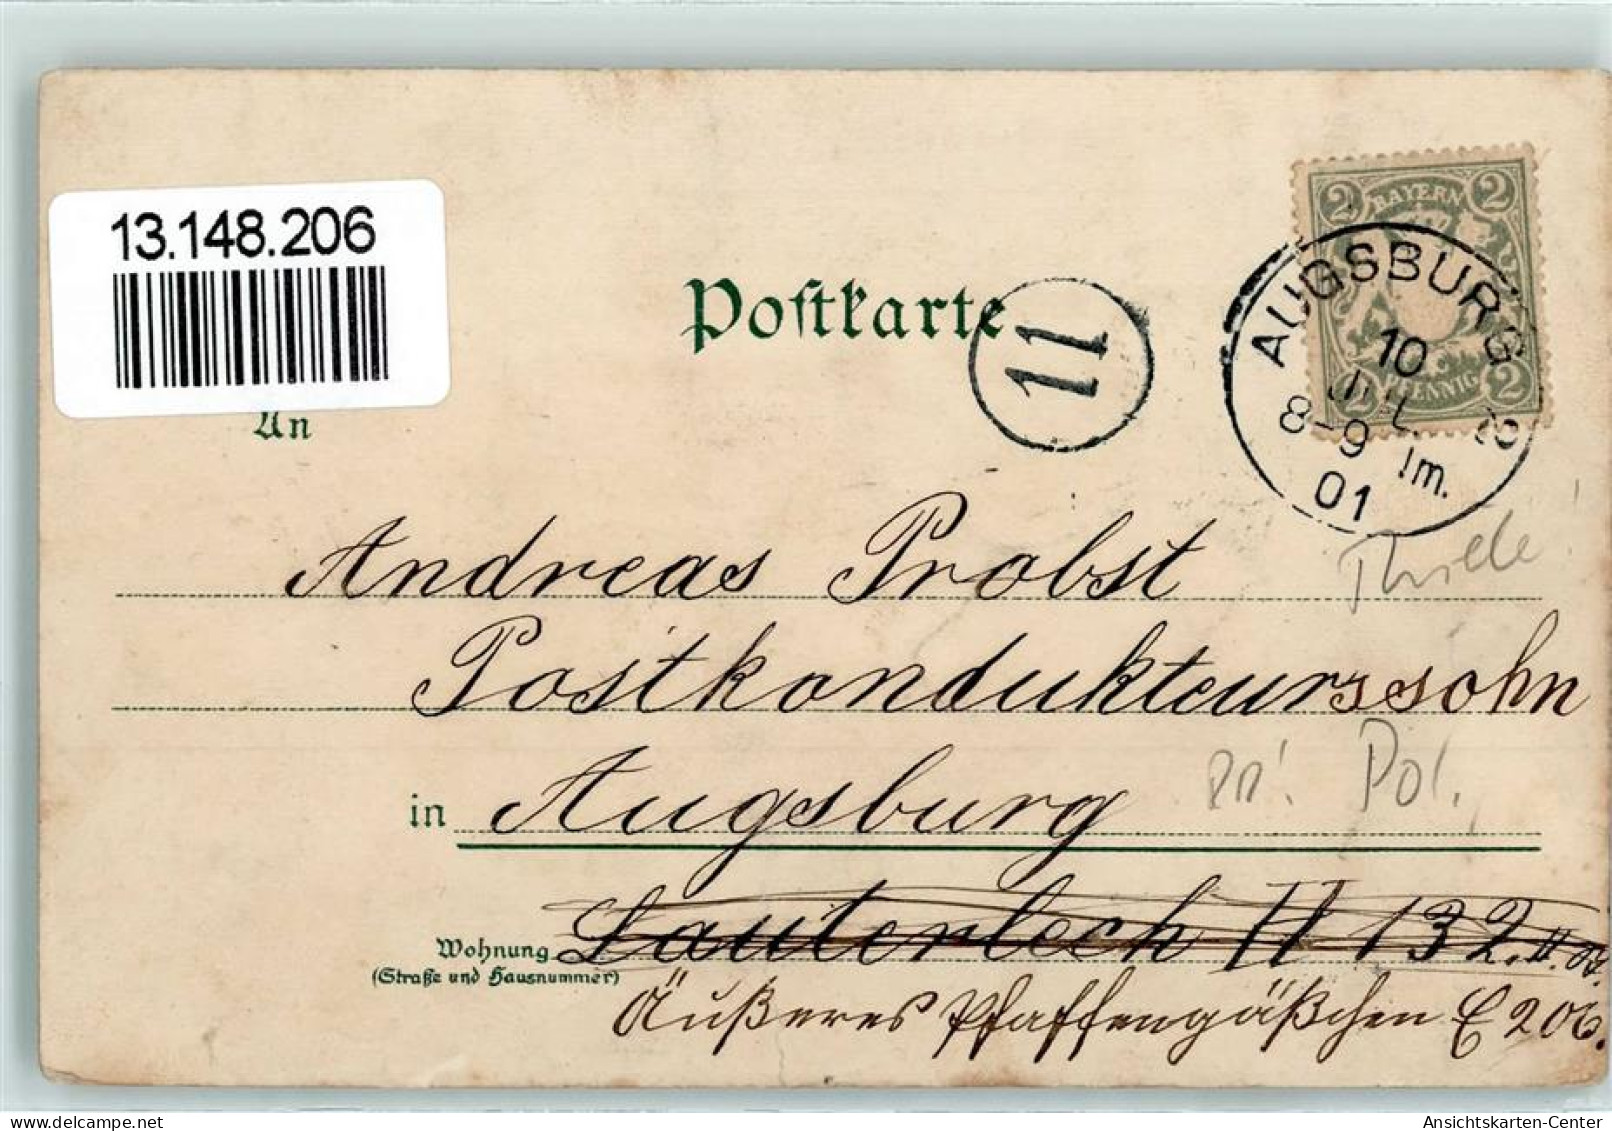 13.148.206
Postkarte
11
2 BAYERN 2
2 PFENNIG 2
AUGSBURG 2
10
JUL
8-9 Im.
01
An
Andreas Probst
Thiele
Postkondukteurssohn
Pol.
in Augsburg
Wohnung Lauterlech H 132. II.
(Straße und Hausnummer)
Äußeres Pfaffengäßchen E 206.
Ansichtskarten-Center